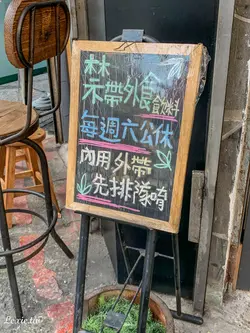 禁帶外食飲料
每週六公休
內用外帶
先排隊唷
Lexie.tw